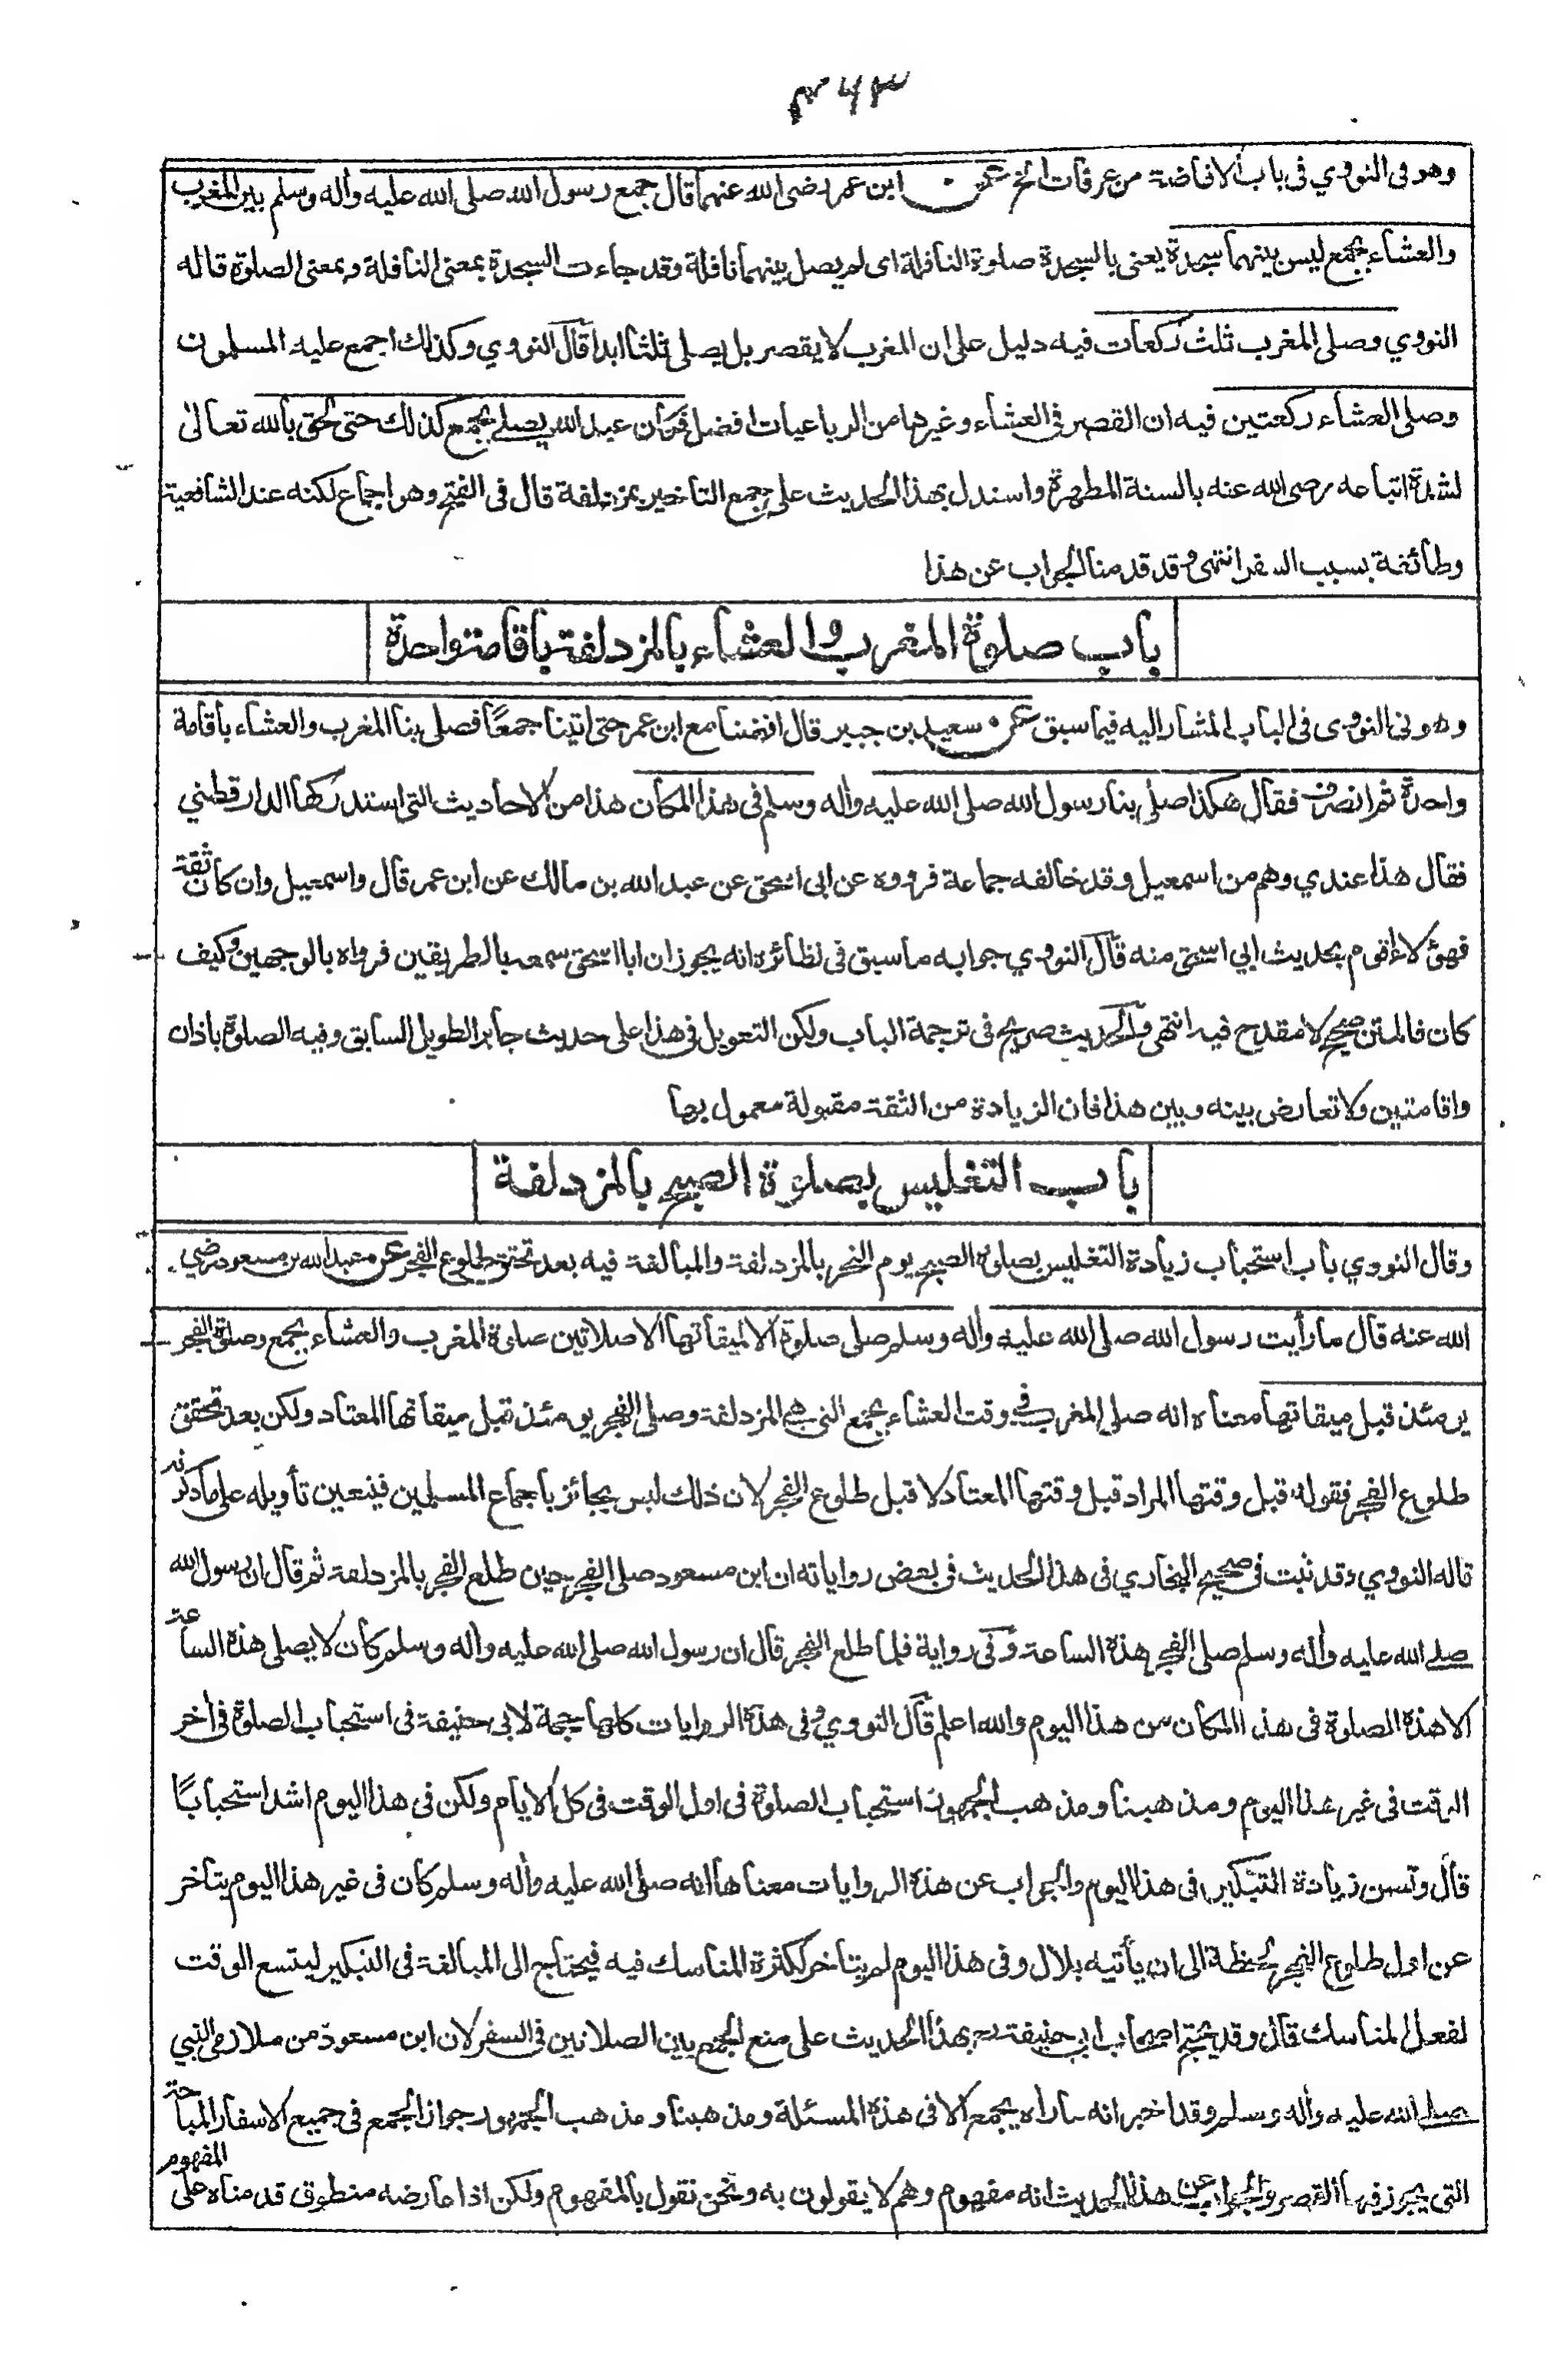 ٤٦٣
وهو في النووي في باب الافاضة من عرفات الخ عن ابن عمر رضي الله عنهما قال جمع رسول الله صلى الله عليه واٰله وسلم بين المغرب
والعشاء بجمع ليس بينهما سجدة يعني بالسجدة صلوة النافلة اى لم يصل بينهما نافلة وقد جاءت السجدة بمعنى النافلة وبمعنى الصلوة قاله
النووي وصلى المغرب ثلث ركعات فيه دليل على ان المغرب لا يقصر بل يصلى ثلثا ابدا قال النووي وكذلك اجمع عليه المسلمون
وصلى العشاء ركعتين فيه ان القصر في العشاء وغيرها من الرباعيات افضل فكان عبد الله يصلي بجمع كذلك حتى لحق بالله تعالى
لشدة اتباعه رضي الله عنه بالسنة المطهرة واستدل بهذا الحديث على جمع التاخير بمزدلفة قال في الفتح وهو اجماع لكنه عند الشافعية
وطائفة بسبب السفر انتهى وقد قدمنا الجواب عن هذا
باب صلوة المغرب والعشاء بالمزدلفة باقامة واحدة
وهو في النووى في الباب المشار اليه فيما سبق عن سعيد بن جبير قال افضنا مع ابن عمر حتى اتينا جمعًا فصلى بنا المغرب والعشاء باقامة
واحدة ثم انصرف فقال هكذا صلى بنا رسول الله صلى الله عليه واٰله وسلم في هذا المكان هذا من الاحاديث التي استدركها الدارقطني
فقال هذا عندي وهم من اسمعيل وقد خالفه جماعة فرووه عن ابى اسحق عن عبد الله بن مالك عن ابن عمر قال واسمعيل وان كان ثقة
فهؤلاء اقوم بحديث ابي اسحق منه قال النووي جوابه ما سبق في نظائره انه يجوز ان ابا اسحق سمعه بالطريقين فرواه بالوجهين وكيف
كان فالمتن صحيح لا مقدح فيه انتهى والحديث صريح في ترجمة الباب ولكن التعويل في هذا على حديث جابر الطويل السابق وفيه الصلوة باذان
واقامتين ولا تعارض بينه وبين هذا فان الزيادة من الثقة مقبولة معمول بها
باب التغليس بصلوة الصبح بالمزدلفة
وقال النووي باب استحباب زيادة التغليس بصلوة الصبح يوم النحر بالمزدلفة والمبالغة فيه بعد تحقق طلوع الفجر عن عبد الله بن مسعود رضي
الله عنه قال ما رأيت رسول الله صلى الله عليه واٰله وسلم صلى صلوة الا لميقاتها الا صلاتين صلوة المغرب والعشاء بجمع وصلوة الفجر
يومئذ قبل ميقاتها معناه انه صلى المغرب في وقت العشاء بجمع التي هي المزدلفة وصلى الفجر يومئذ قبل ميقاتها المعتاد ولكن بعد تحقق
طلوع الفجر فقوله قبل وقتها المراد قبل وقتها المعتاد لا قبل طلوع الفجر لان ذلك ليس بجائز باجماع المسلمين فيتعين تأويله على ما ذكرته
قاله النووي وقد ثبت في صحيح البخاري في هذا الحديث في بعض رواياته ان ابن مسعود صلى الفجر حين طلع الفجر بالمزدلفة ثم قال ان رسول الله
صلى الله عليه واٰله وسلم صلى الفجر هذه الساعة وفي رواية فلما طلع الفجر قال ان رسول الله صلى الله عليه واٰله وسلم كان لا يصلى هذه الساعة
الا هذه الصلوة في هذا المكان من هذا اليوم والله اعلم قال النووي وفي هذه الروايات كلها حجة لابى حنيفة في استحباب الصلوة في اٰخر
الوقت في غير هذا اليوم ومذهبنا ومذهب الجمهور استحباب الصلوة في اول الوقت في كل الايام ولكن في هذا اليوم اشد استحبابًا
قال وتسن زيادة التبكير في هذا اليوم والجواب عن هذه الروايات معناها انه صلى الله عليه واٰله وسلم كان في غير هذا اليوم يتاخر
عن اول طلوع الفجر لحظة الى ان يأتيه بلال وفي هذا اليوم لم يتاخر لكثرة المناسك فيه فيحتاج الى المبالغة في التبكير ليتسع الوقت
لفعل المناسك قال وقد يحتج اصحاب ابي حنيفة رح بهذا الحديث على منع الجمع بين الصلاتين في السفر لان ابن مسعود من ملازمى النبي
صلى الله عليه واٰله وسلم وقد اخبر انه ما راٰه يجمع الا في هذه المسئلة ومذهبنا ومذهب الجمهور جواز الجمع في جميع الاسفار المباحة
التي يجوز فيها القصر والجواب عن هذا الحديث انه مفهوم وهم لا يقولون به ونحن نقول بالمفهوم ولكن اذا عارضه منطوق قدمناه على المفهوم